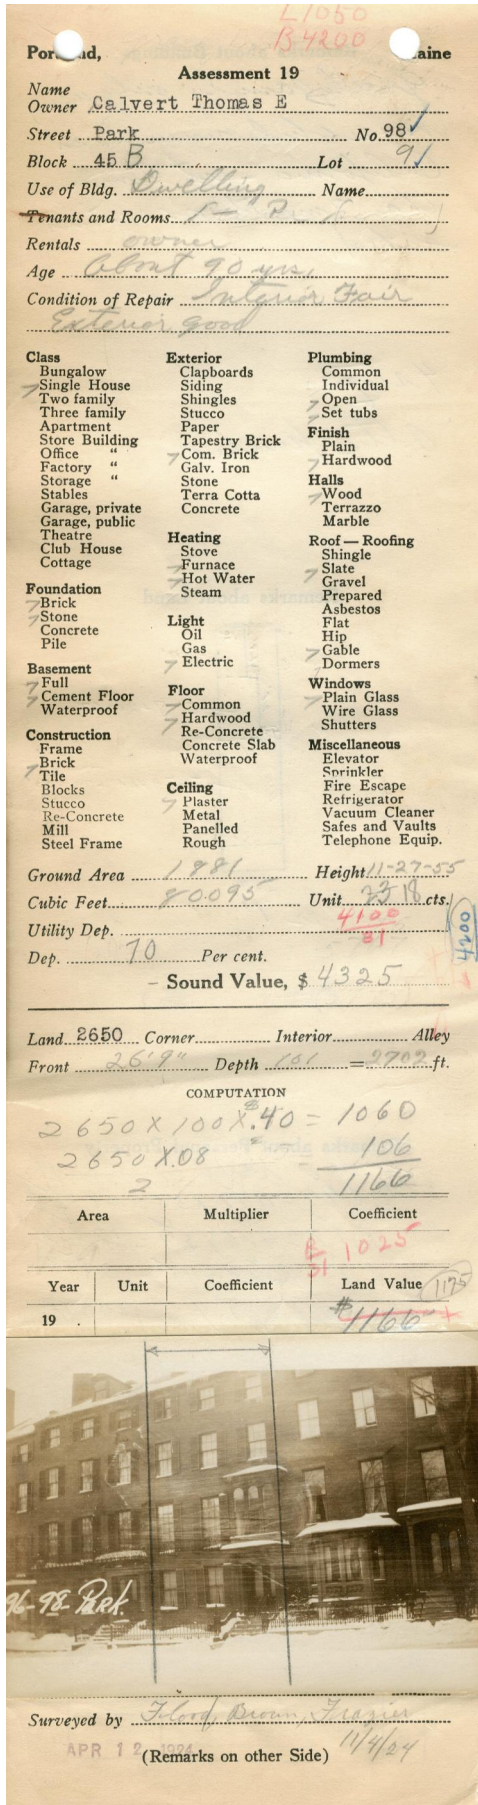 L 1050
B 4200
Portland, Maine
Assessment 19
Name
Owner Calvert Thomas E
Street Park No. 98
Block 45 B Lot 9
Use of Bldg. Dwelling Name
Tenants and Rooms 1-
Rentals owner
Age About 90 yrs.
Condition of Repair Interior Fair
Exterior good
Class
Bungalow
Single House
Two family
Three family
Apartment
Store Building
Office "
Factory "
Storage "
Stables
Garage, private
Garage, public
Theatre
Club House
Cottage
Foundation
Brick
Stone
Concrete
Pile
Basement
Full
Cement Floor
Waterproof
Construction
Frame
Brick
Tile
Blocks
Stucco
Re-Concrete
Mill
Steel Frame
Exterior
Clapboards
Siding
Shingles
Stucco
Paper
Tapestry Brick
Com. Brick
Galv. Iron
Stone
Terra Cotta
Concrete
Heating
Stove
Furnace
Hot Water
Steam
Light
Oil
Gas
Electric
Floor
Common
Hardwood
Re-Concrete
Concrete Slab
Waterproof
Ceiling
Plaster
Metal
Panelled
Rough
Plumbing
Common
Individual
Open
Set tubs
Finish
Plain
Hardwood
Halls
Wood
Terrazzo
Marble
Roof — Roofing
Shingle
Slate
Gravel
Prepared
Asbestos
Flat
Hip
Gable
Dormers
Windows
Plain Glass
Wire Glass
Shutters
Miscellaneous
Elevator
Sprinkler
Fire Escape
Refrigerator
Vacuum Cleaner
Safes and Vaults
Telephone Equip.
Ground Area 1881 Height 11-27-55
Cubic Feet 80095 Unit 23 18 cts.
4100
51
4200
Utility Dep.
Dep. 70 Per cent.
- Sound Value, $ 4325
Land 2650 Corner Interior Alley
Front 26'9" Depth 101 = 2702 ft.
COMPUTATION
2650 X 100 X $.40 = 1060
2650 X .08 = 106
2 1166
Area Multiplier Coefficient
R 1025
51
Year Unit Coefficient Land Value 1175
19 . $1166
96-98 Park.
Surveyed by Flood, Brown, Frazier
APR 12 1924 11/4/24
(Remarks on other Side)